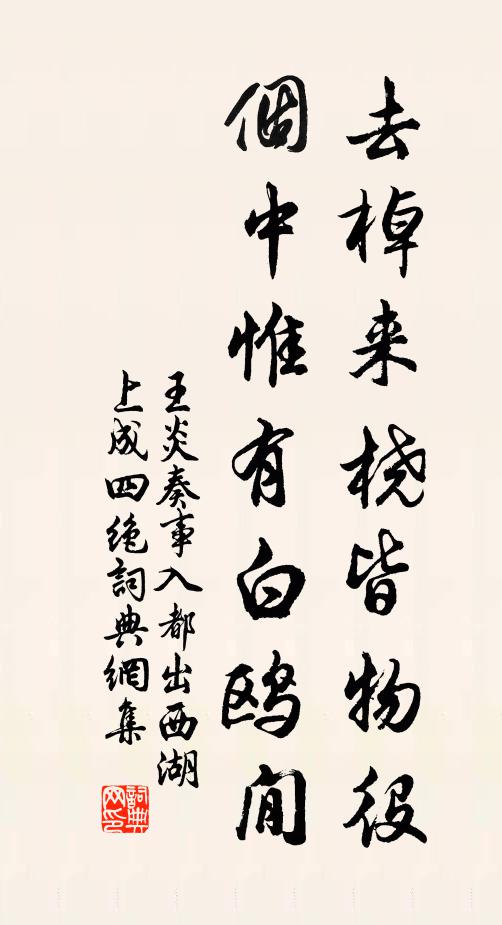 去棹来桡皆物役
個中惟有白鸥閒
王炎奏事入都出西湖
上成四绝詞典網集
詞典网印